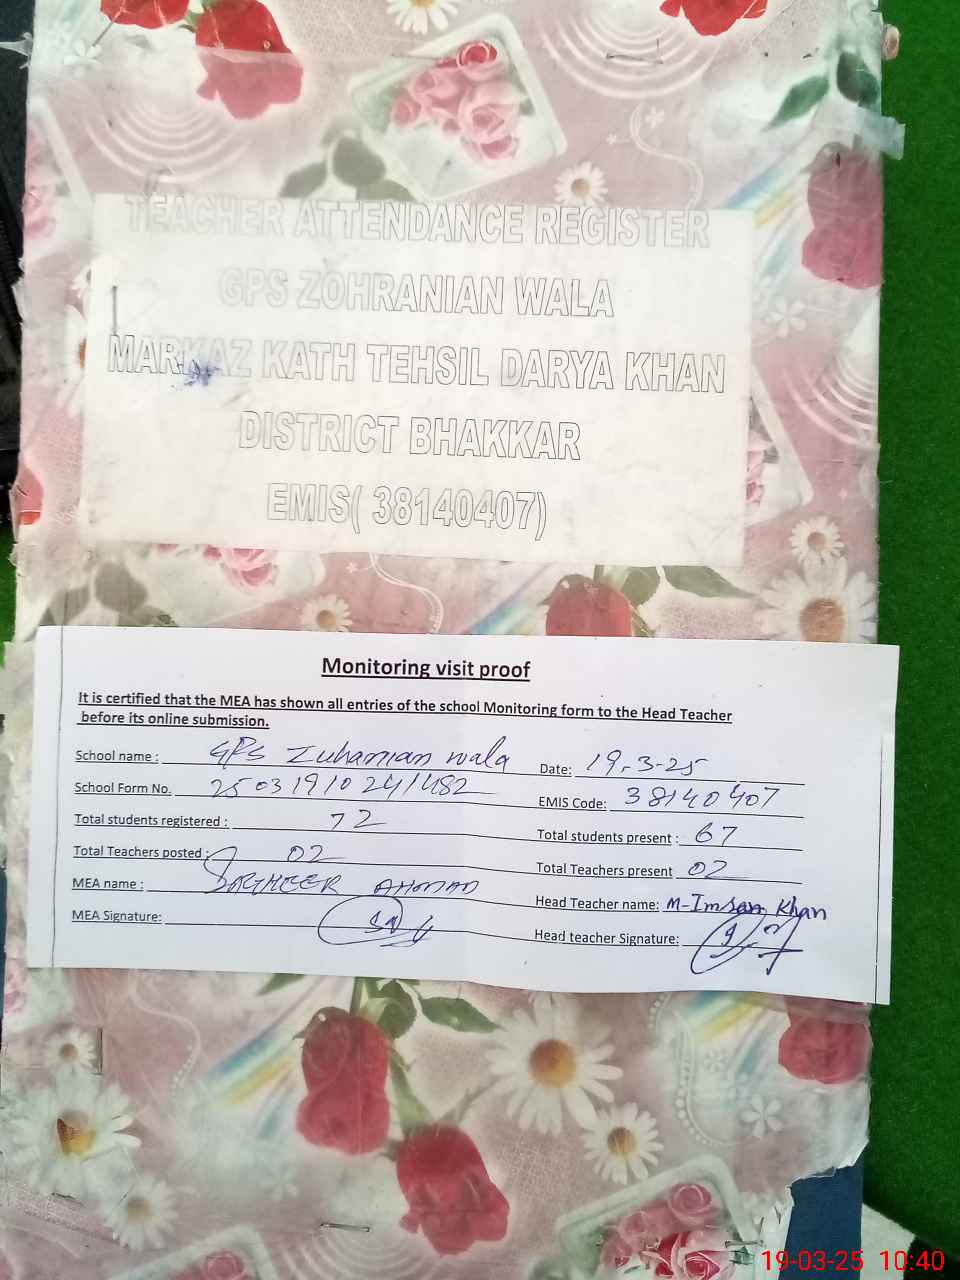 TEACHER ATTENDANCE REGISTER
GPS ZOHRANIAN WALA
MARKAZ KATH TEHSIL DARYA KHAN
DISTRICT BHAKKAR
EMIS( 38140407)
Monitoring visit proof
It is certified that the MEA has shown all entries of the school Monitoring form to the Head Teacher
before its online submission.
School name : GPS Zuhranian wala Date: 19.3-25
School Form No. 25031910241482 EMIS Code: 38140407
Total students registered : 72 Total students present : 67
Total Teachers posted : 02 Total Teachers present 02
MEA name : AHMAD Head Teacher name: M-Imran Khan
MEA Signature: Head teacher Signature:
19-03-25 10:40